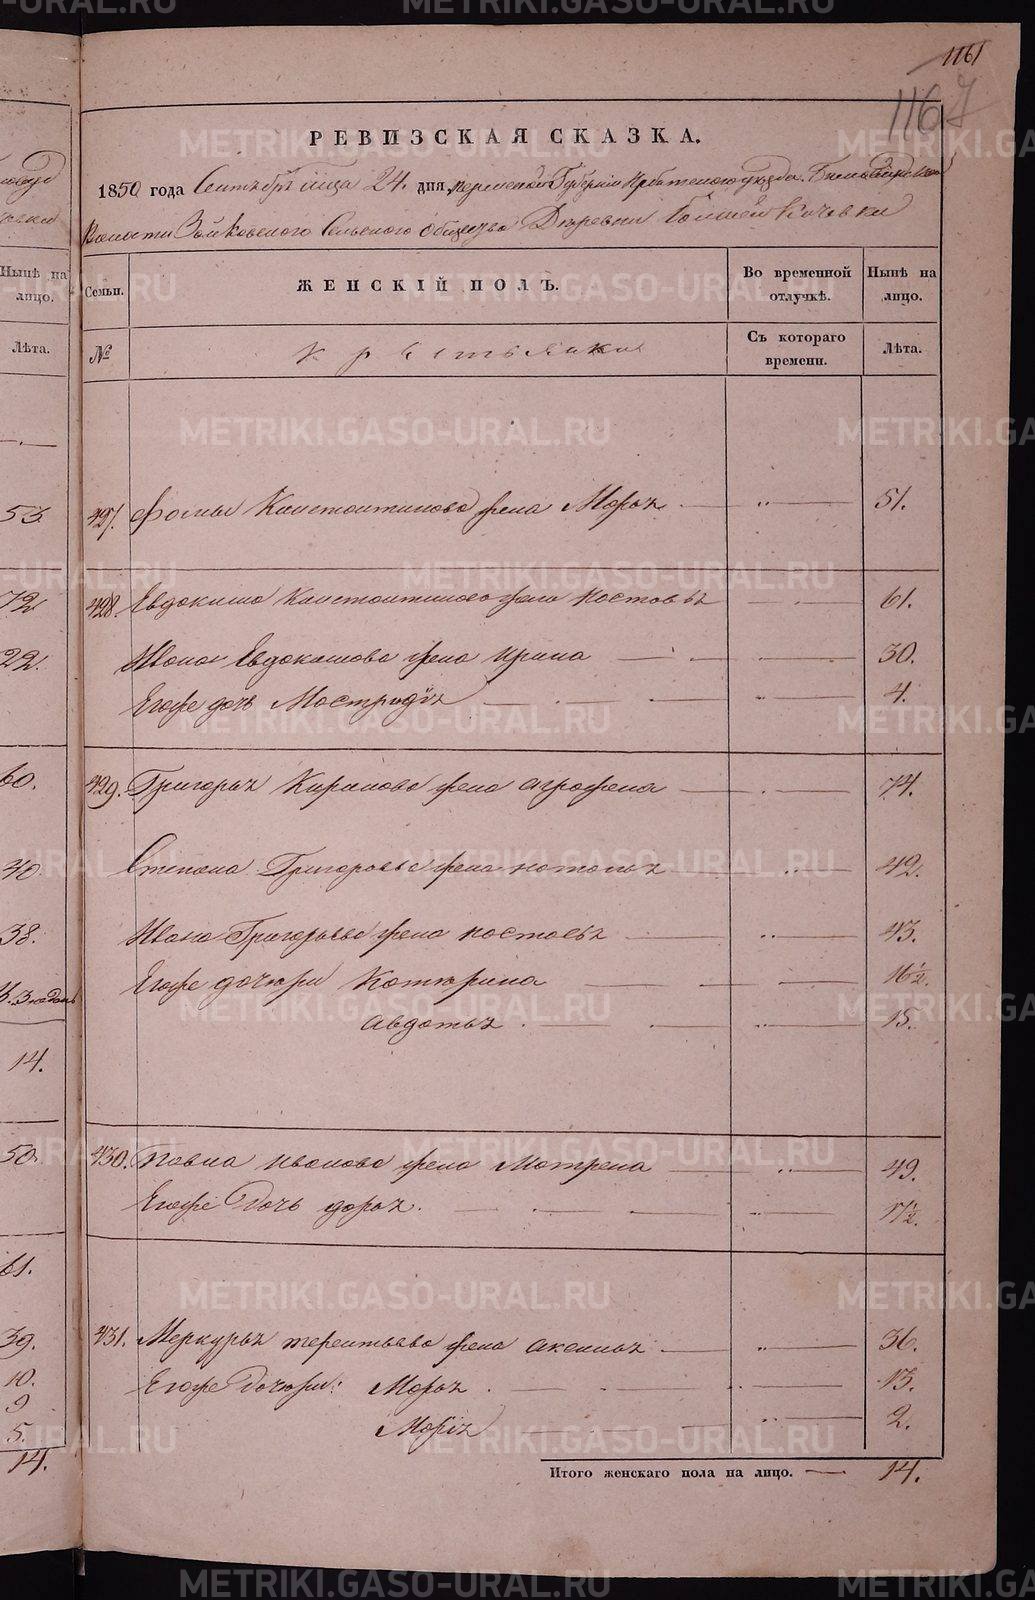 1161
1167
РЕВИЗСКАЯ СКАЗКА.
1850 года Сентября мца 24. дня, Пермской Губернии Ирбитского уезда
Волости Зайковского Сельского общества Деревни Большей Кочевки
Семьи.
ЖЕНСКІЙ ПОЛЪ.
Во временной отлучкѣ.
Нынѣ на лицо.
№
крестьянки
Съ котораго времени.
Лѣта.
427. Фомы Константинова жена Марья 51.
428. Евдокима Константинова жена Настасья 61.
Ивана Евдокимова жена Ирина 30.
Егоже дочь Мастридія 4.
429. Григорья Кирилова жена Агрофена 74.
Степана Григорьева жена Наталья 42.
Ивана Григорьева жена Настасья 43.
Егоже дочери Катерина 16½.
Авдотья 15.
430. Павла Иванова жена Матрена 49.
Егоже дочь Дарья 17½.
431. Меркурья Терентьева жена Аксинья 36.
Егоже дочери: Марья 13.
Марія 2.
Итого женскаго пола на лицо. 14.
Нынѣ на лицо.
Лѣта.
53
72
22.
60.
40
38.
14.
50.
61.
39.
10.
9
5.
14.
METRIKI.GASO-URAL.RU